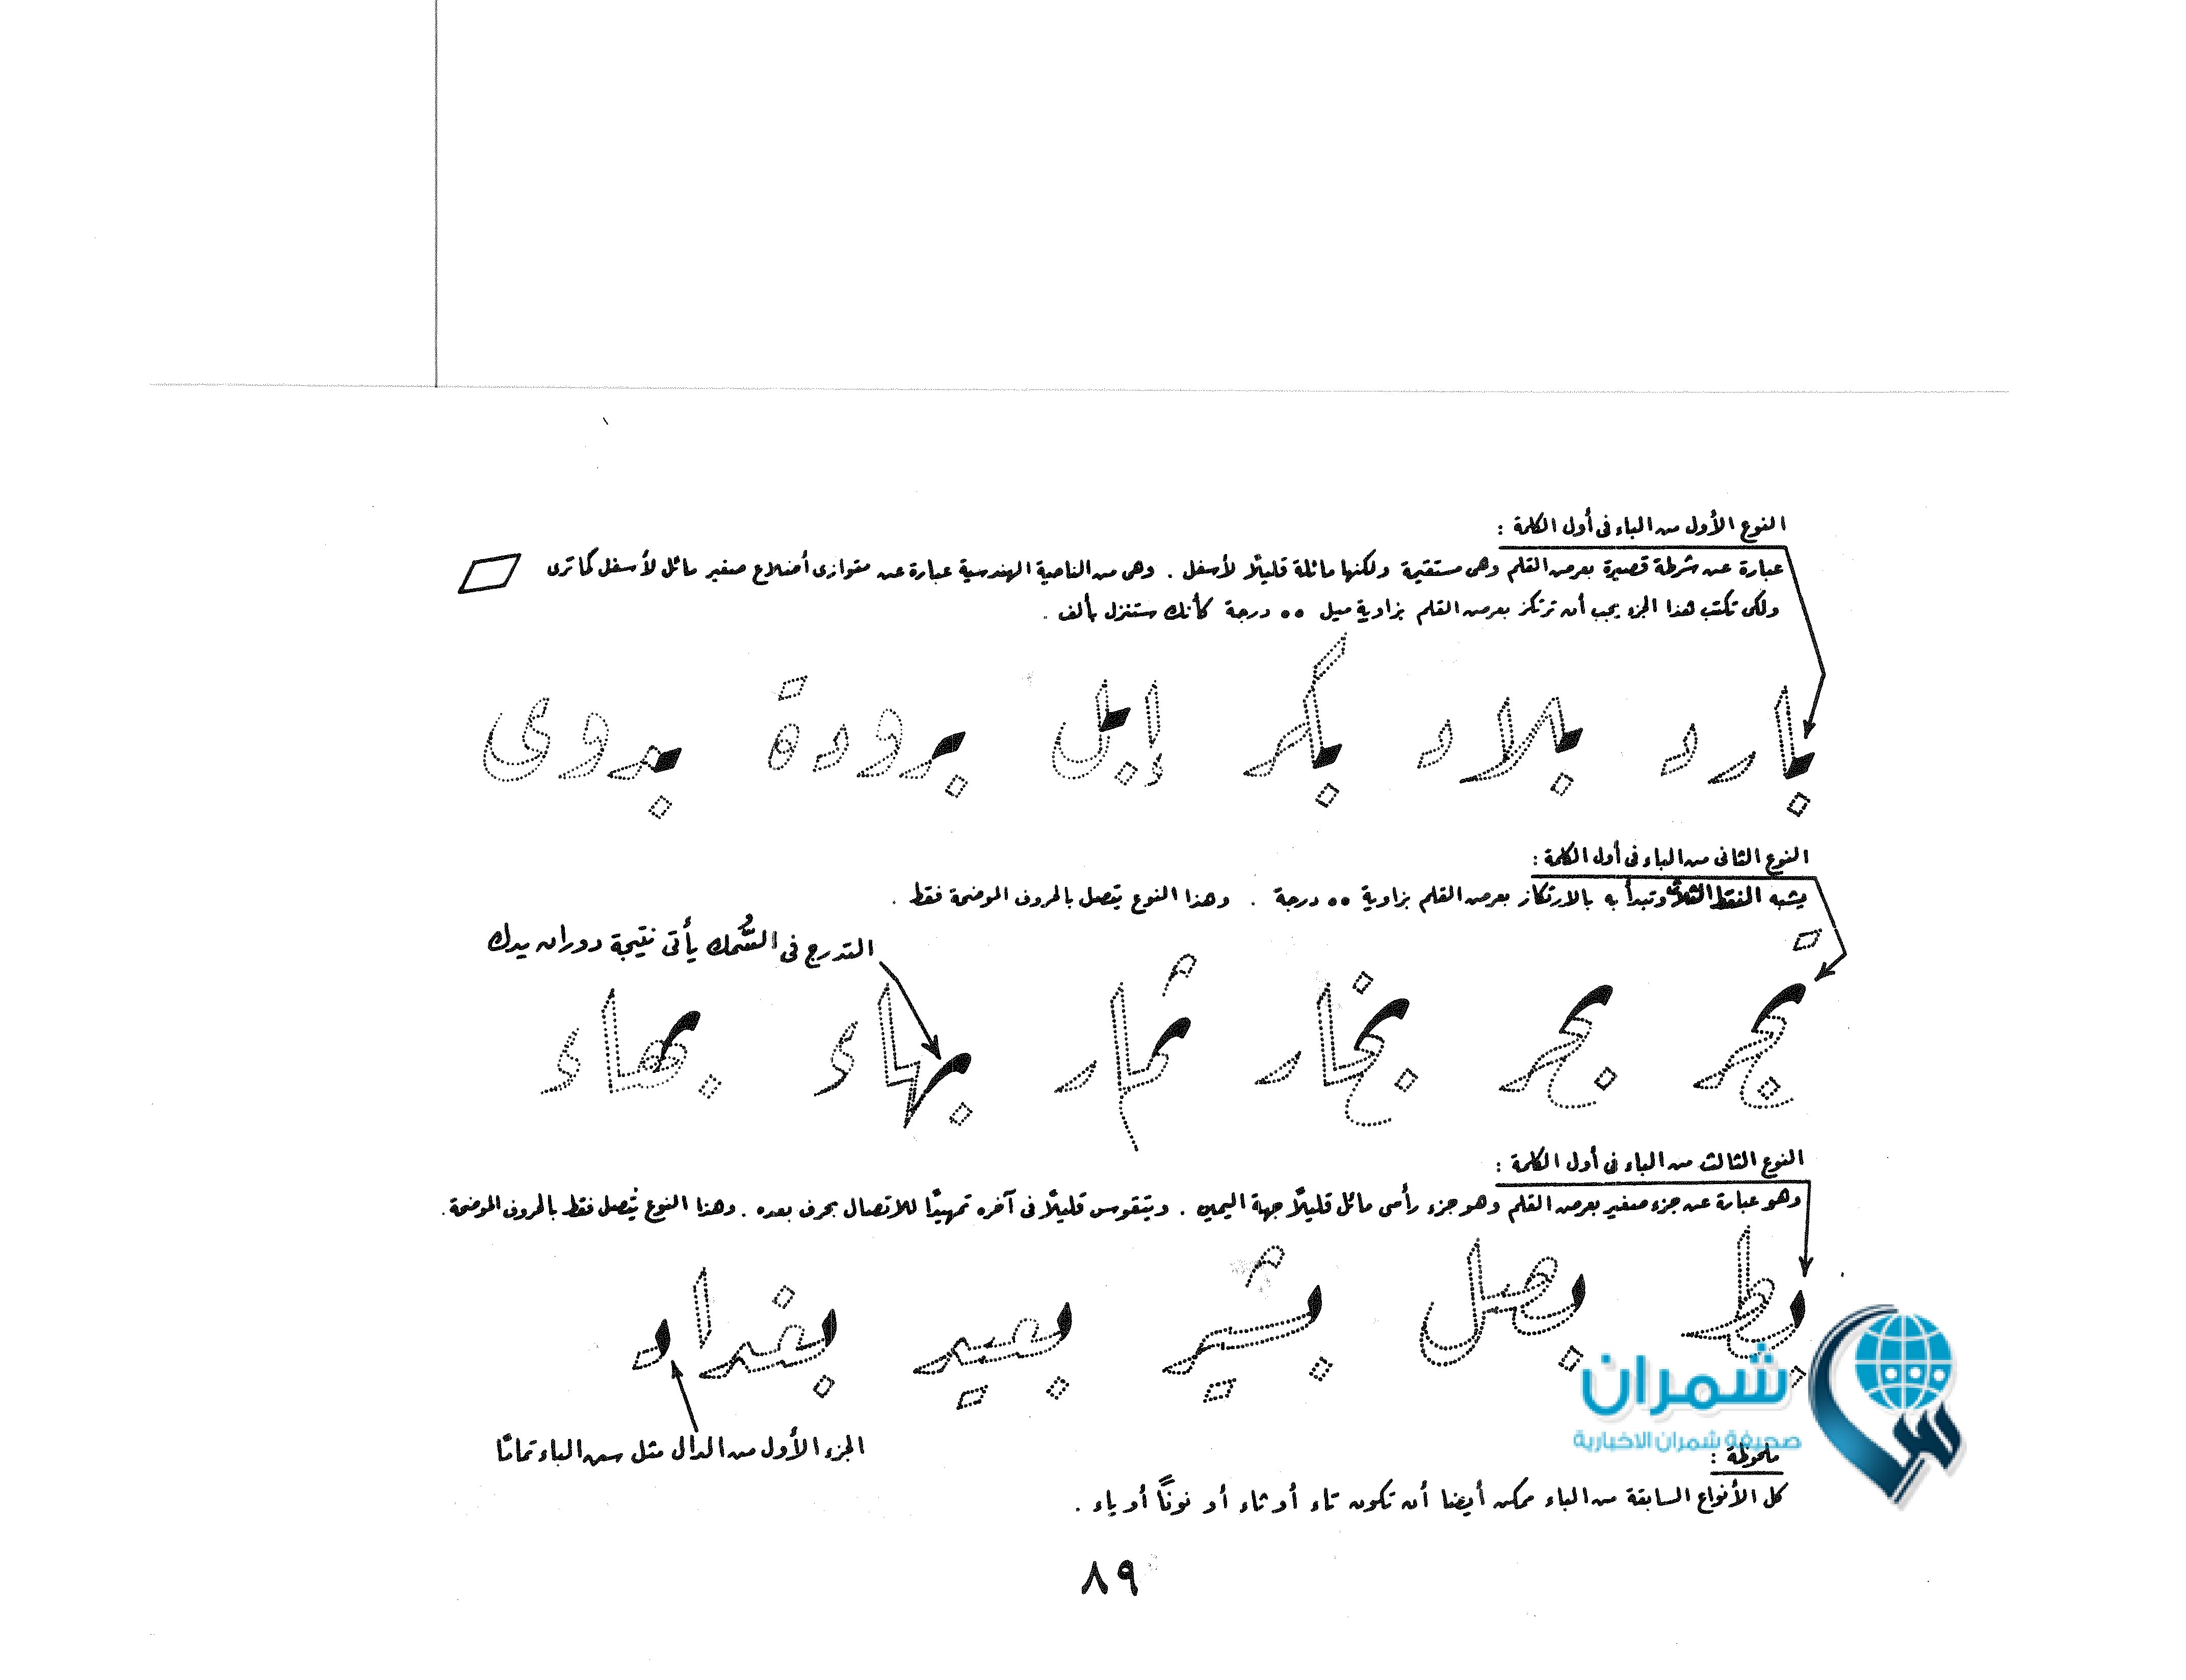 النوع الأول من الباء فى أول الكلمة :
عبارة عن شرطة قصيرة بعرض القلم وهى مستقيمة ولكنها مائلة قليلًا لأسفل . وهى من الناحية الهندسية عبارة عن متوازى أضلاع صغير مائل لأسفل كما ترى
ولكى تكتب هذا الجزء يجب أن ترتكز بعرض القلم بزاوية ميل ٥٥ درجة كأنك ستنزل بألف .
بارد بلاد بكر إبل برودة بدوى
النوع الثانى من الباء فى أول الكلمة :
يشبه النقط الثلاث وتبدأ به بالارتكاز بعرض القلم بزاوية ٥٥ درجة . وهذا النوع يتصل بالحروف الموضحة فقط .
التدرج فى السُّمك يأتى نتيجة دوران يدك
تجر بحر بخار ثمار بهاء بهاء
النوع الثالث من الباء فى أول الكلمة :
وهو عبارة عن جزء صغير بعرض القلم وهو جزء رأسى مائل قليلًا جهة اليمين . ويتقوس قليلًا فى آخره تمهيدًا للاتصال بحرف بعده . وهذا النوع يتصل فقط بالحروف الموضحة .
بط بصل بشير بعير بغداد
الجزء الأول من الدال مثل سن الباء تمامًا
شمران
صحيفة شمران الاخبارية
ملحوظة :
كل الأنواع السابقة من الباء ممكن أيضا أن تكون تاء أو ثاء أو نونًا أو ياء .
٨٩